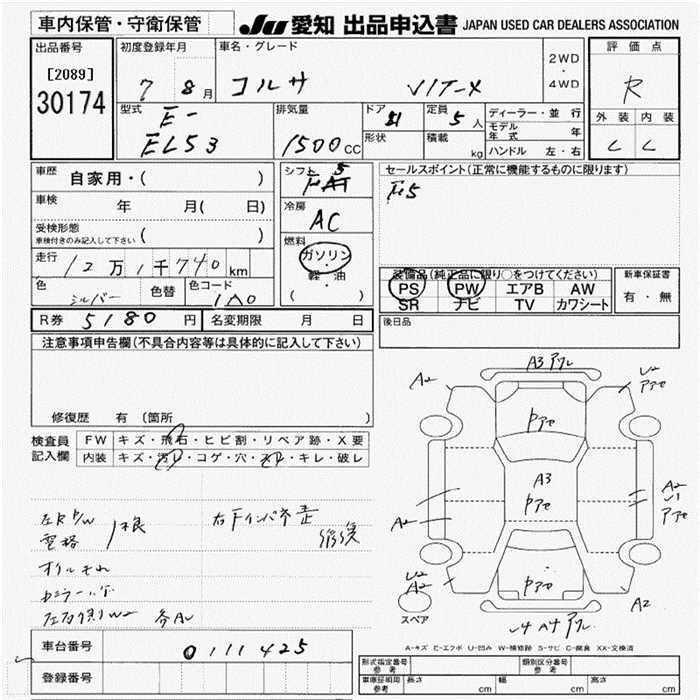 車内保管・守衛保管
JU 愛知 出品申込書 JAPAN USED CAR DEALERS ASSOCIATION
出品番号
[2089]
30174
初度登録年月
7 8月
車名・グレード
コルサ VIT-X
2WD
・
4WD
評価点
R
外装 内装
C C
型式
E-
EL53
排気量
1500cc
ドア
形状
定員
5人
積載
kg
ディーラー・並行
モデル年式 年
ハンドル 左・右
車歴
自家用・( )
車検
年 月( 日)
受検形態
車検付きのみ記入して下さい ( )
走行
12万1千740km
色
シルバー
色替
色コード
1A0
シフト
5
冷房
AC
燃料
ガソリン
軽・油
( )
セールスポイント(正常に機能するものに限ります)
装備品(純正品に限り○をつけてください)
PS PW エアB AW
SR ナビ TV カワシート
新車保証書
有・無
後日品
R券 5180円 名変期限 月 日
注意事項申告欄(不具合内容等は具体的に記入して下さい)
修復歴 有 (箇所 )
検査員
記入欄
FW キズ・飛石・ヒビ割・リペア跡・X要
内装 キズ・汚レ・コゲ・穴・スレ・キレ・破レ
左R P/W
右Fインパネ歪
修復
オイルもれ
A3
A2
A2
A3
A2
A2
U2
A2
A2
スペア
A-キズ E-エクボ U-凹み W-補修跡 S-サビ C-腐食 XX-交換済
車台番号
0111425
登録番号
形式指定番号
参考
類別区分番号
参考
車庫証明用
参考
長さ cm 幅 cm 高さ cm